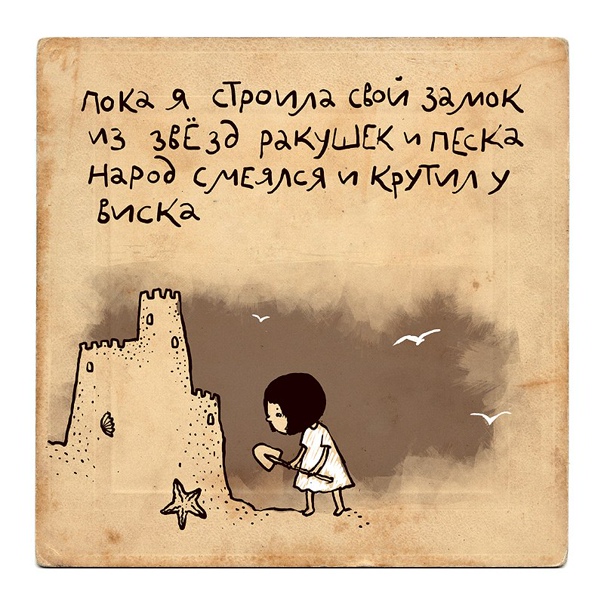 пока я строила свой замок
из звёзд ракушек и песка
народ смеялся и крутил у
виска